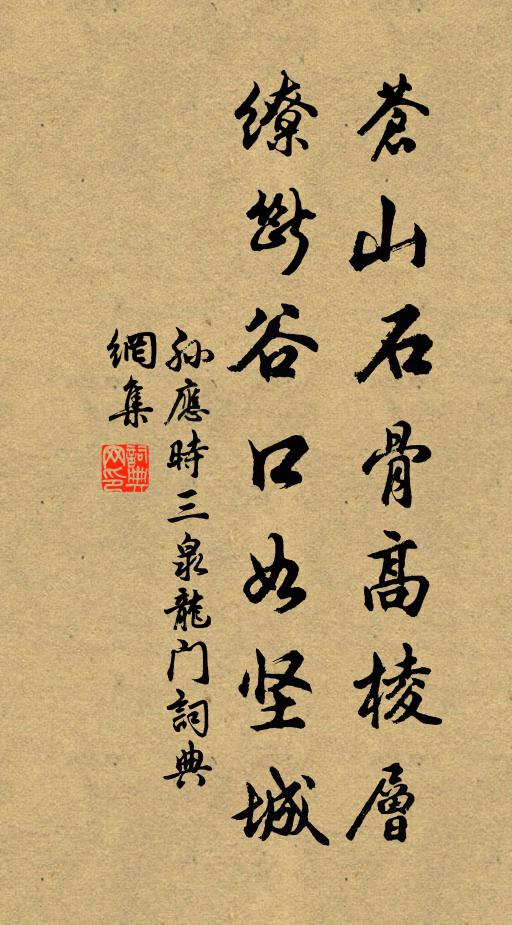 蒼山石骨高棱層
繚斷谷口如坚城
孫應時三泉龍门詞典
網集
詞典
网印